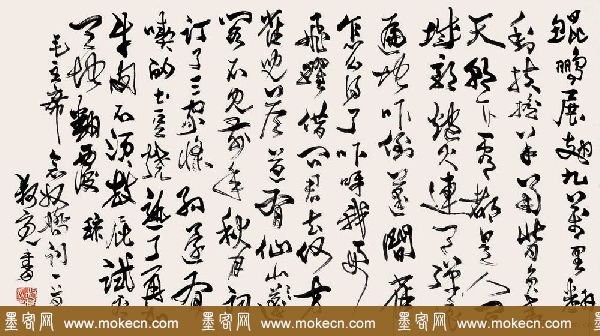 鲲鹏展翅九万里翻
动扶摇羊角背负青
天朝下看都是人间
城郭炮火连天弹痕
遍地吓倒蓬间雀
怎么得了哎呀我要
飞跃借问君去何方
雀儿答道有仙山琼
阁不见前年秋月朗
订了三家条约还有
吃的土豆烧熟了再加
牛肉不须放屁试看
天地翻覆 录
毛主席念奴娇词一首
书
墨客网 www.mokecn.com 墨客网 www.mokecn.com 墨客网 www.mokecn.com